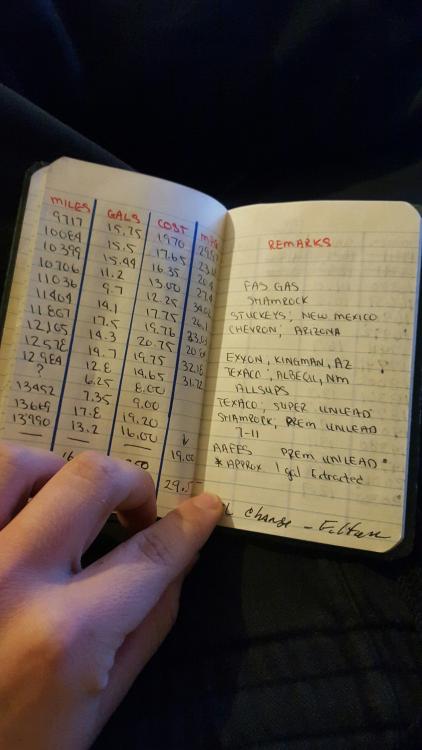 MILES GALS COST
9717 15.75 1970
10084 15.5 17.65
10399 15.44 16.35
10706 11.2 13.00
11036 9.7 12.25
11464 14.1 17.75
11807 17.5 19.76
12105 14.3 20.75
12578 14.7 19.75 32.18
12984 12.8 14.65 31.72
? 6.25 8.00
13452 7.35 9.00
13669 17.8 19.20
13990 13.2 16.00
19.00
REMARKS
FAS GAS
SHAMROCK
STUCKEYS, NEW MEXICO
CHEVRON, ARIZONA
EXXON, KINGMAN, AZ
TEXACO, ALBEQU, NM
ALLSUPS
TEXACO, SUPER UNLEAD
SHAMROCK, PREM UNLEAD
7-11
AAFES PREM UNLEAD
* APPROX 1 gal Extracted
change - Filter